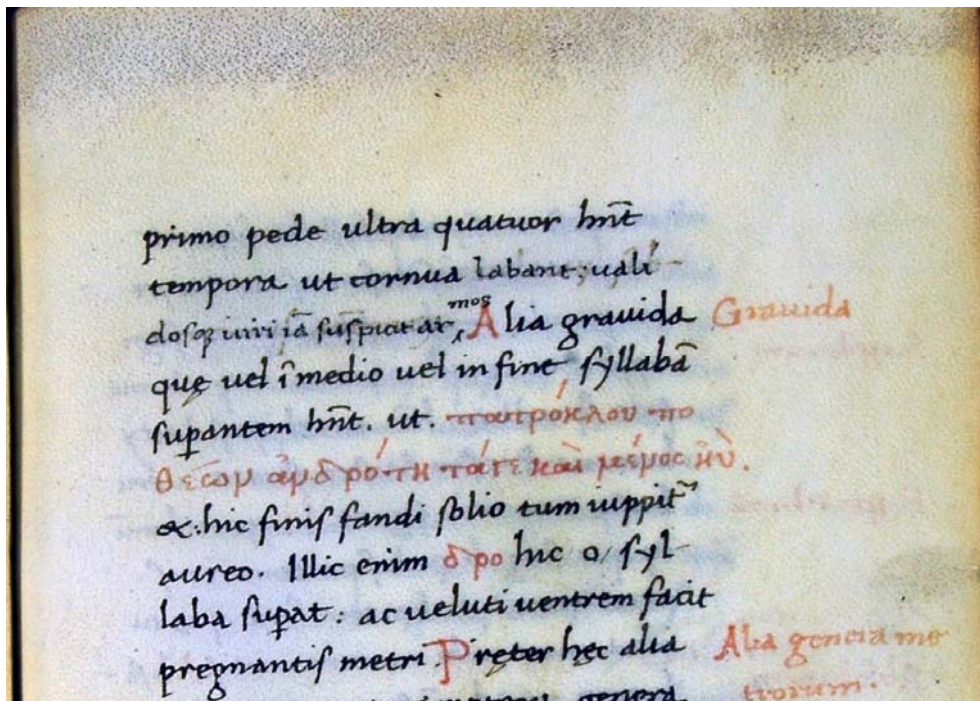 primo pede ultra quatuor hn̄t
tempora ut cornua labant; uali
dosq; uiri iā suspicit ar mos Alia grauida Grauida
quę uel ī medio uel in fine syllabā
supantem hn̄t. ut. πατρόκλου πο
θέων ἀνδρότητα τε καὶ μένος ἠὺ.
&. hic finis fandi solio tum iuppit
aureo. Illic enim δρο hic o, syl
laba supat: ac ueluti uentrem facit
pregnantis metri. Pręter hęc alia Alia genera me
genera trorum.